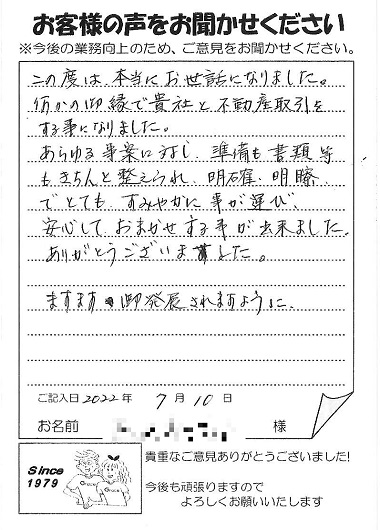 お客様の声をお聞かせください
※今後の業務向上のため、ご意見をお聞かせください。
この度は、本当にお世話になりました。
何かの御縁で貴社と不動産取引を
する事になりました。
あらゆる事案に対し、準備も書類等
もきちんと整えられ、明確、明瞭
でとても、すみやかに事が運び、
安心しておまかせする事が出来ました。
ありがとうございました。
ますます御発展されますように。
ご記入日 2022年 7月 10日
お名前 様
Since
1979
貴重なご意見ありがとうございました!
今後も頑張りますので
よろしくお願いいたします